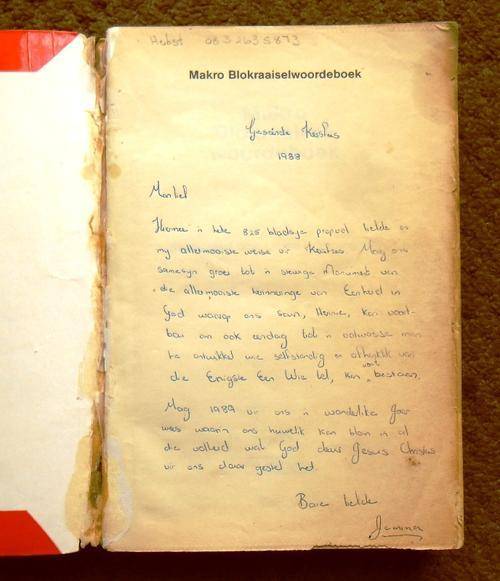 Herbst 083 2635873
Makro Blokraaiselwoordeboek
Geseënde Kersfees
1988
Hiermee 'n hele 825 bladsye propvol liefde as
my allermooiste wense vir Kersfees. Mag ons
samesyn groei tot 'n ewige Monument van
die allermooiste herinneringe van Eenheid in
God waarop ons seun, Hennie, kan voort-
bou om ook eendag tot 'n volwasse man
te ontwikkel wie selfstandig en afhanklik van
die Enigste Een Wie tel, kan voort bestaan.
Mag 1989 vir ons 'n wonderlike Jaar
wees waarin ons huwelik kan blom in al
die volheid wat God deur Jesus Christus
vir ons daar gestel het.
Baie liefde